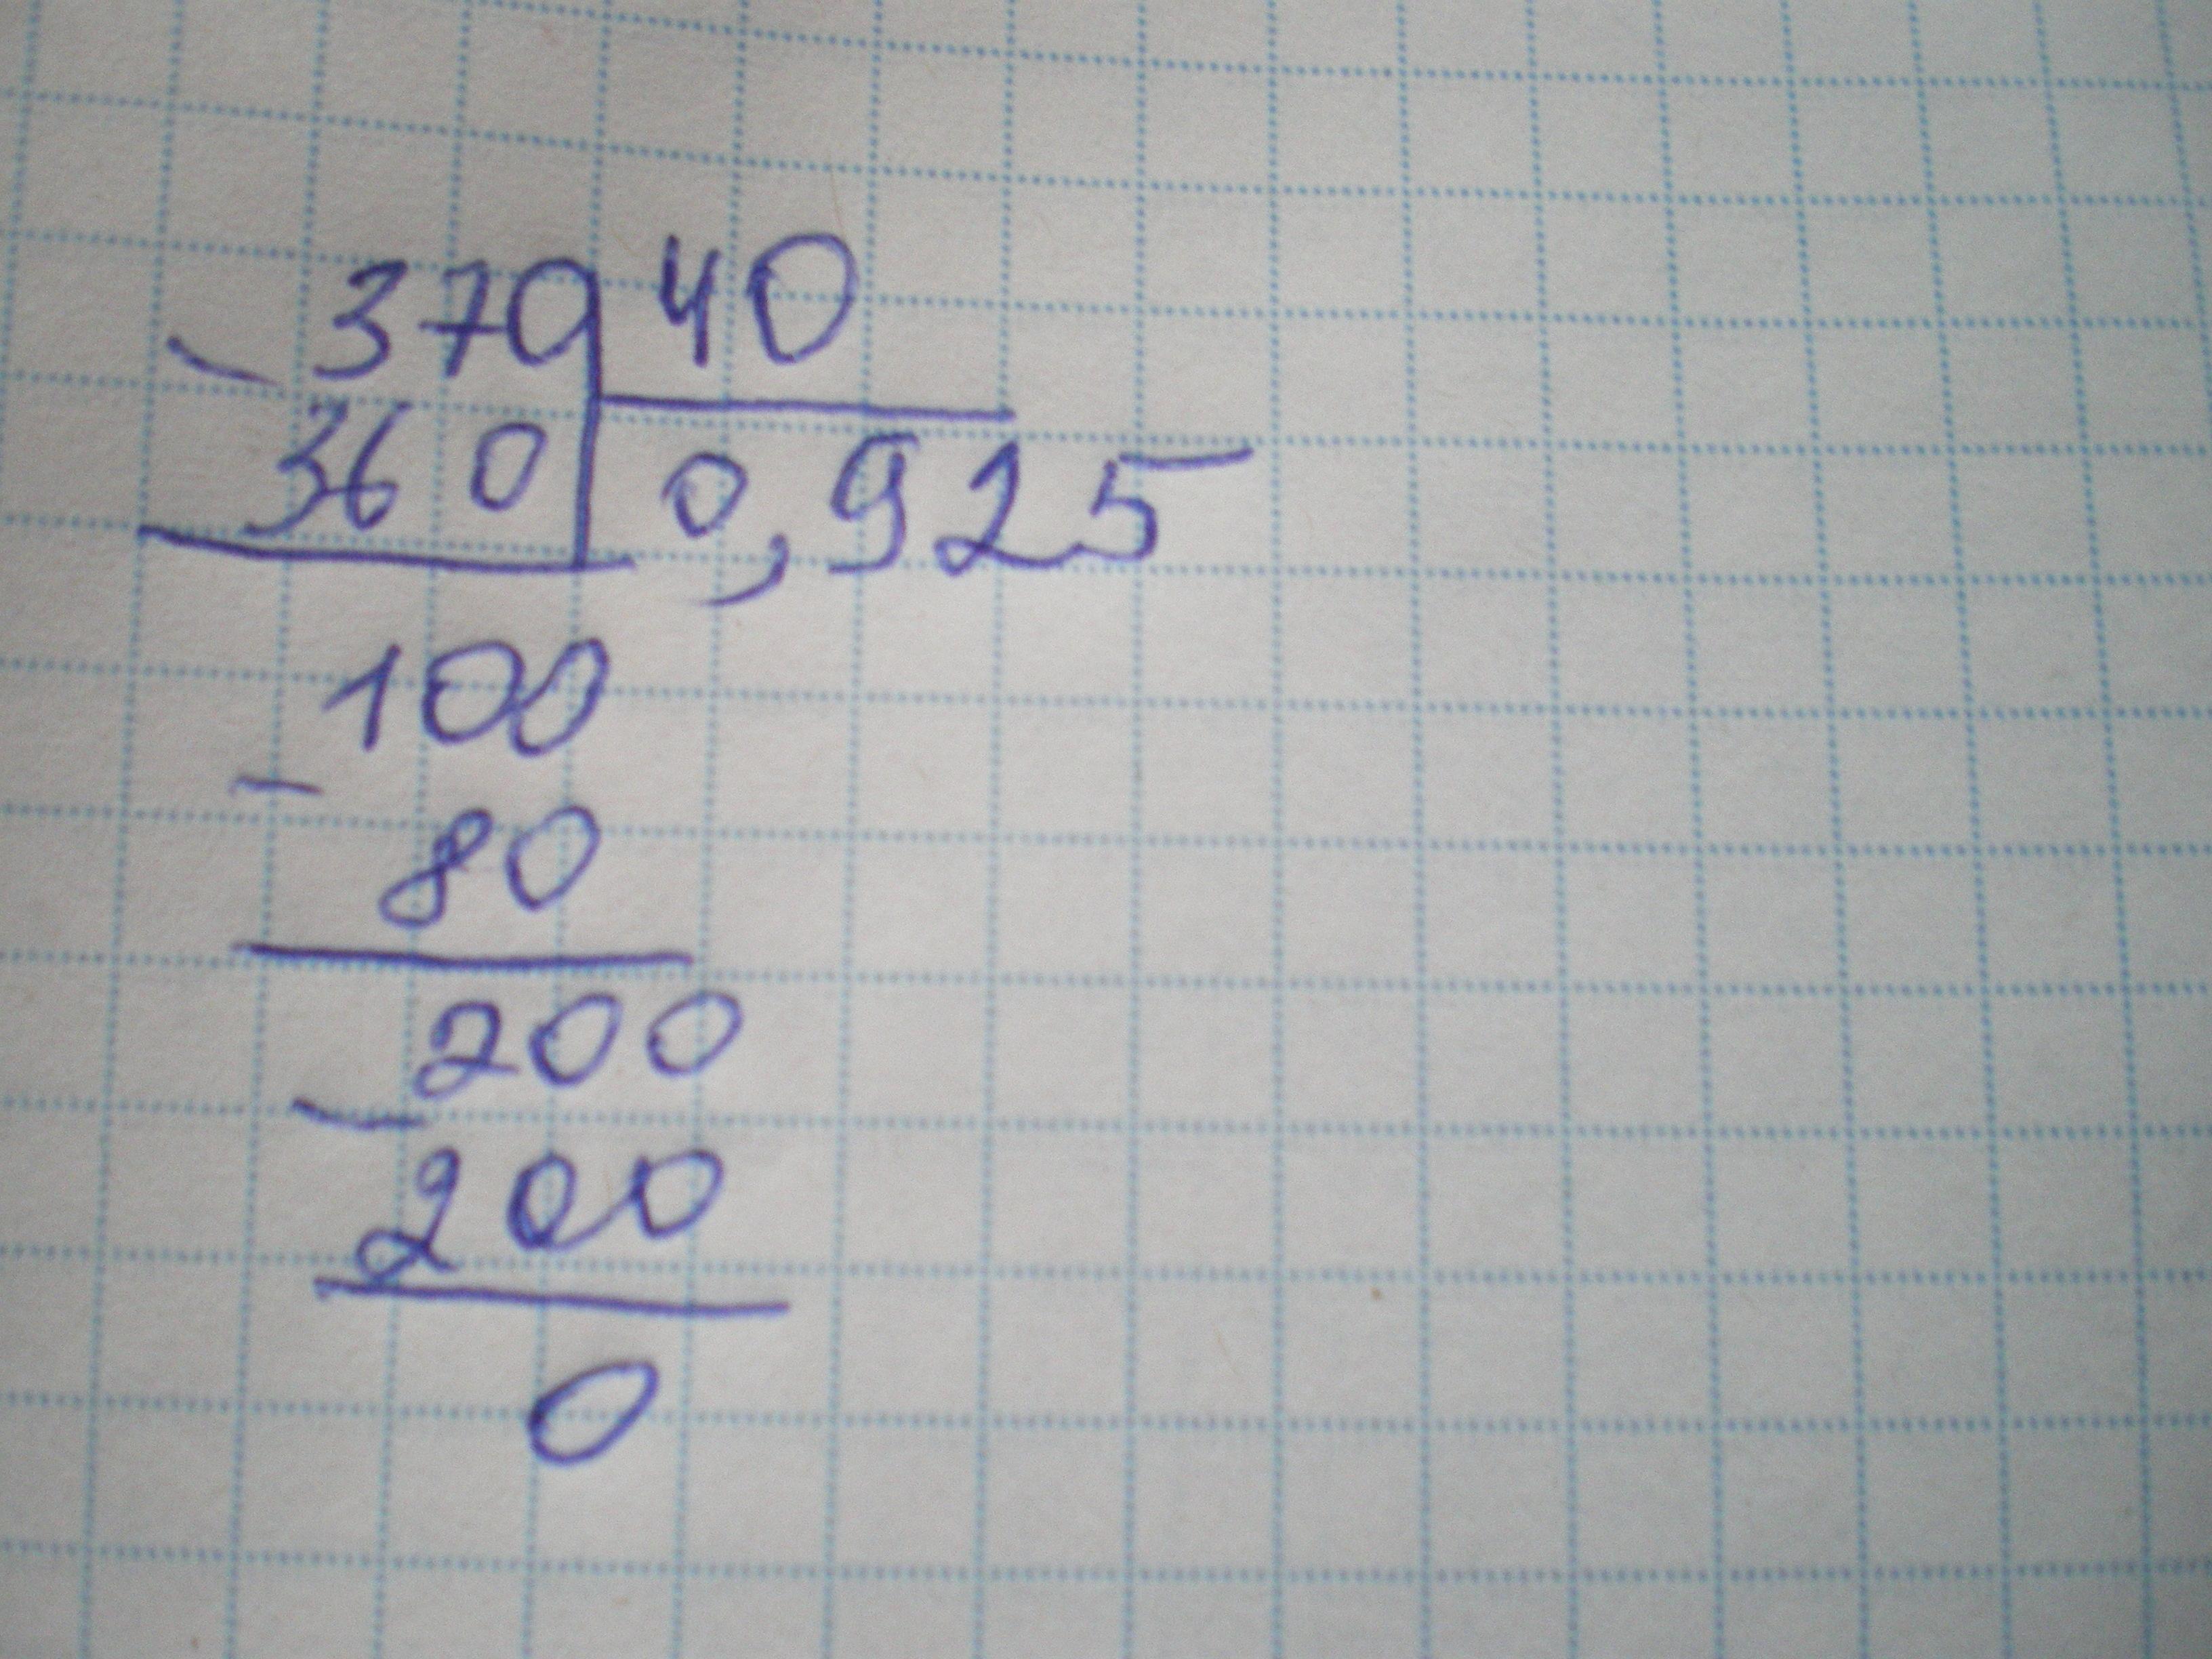 - 370 40
360 0,925
100
- 80
200
- 200
0